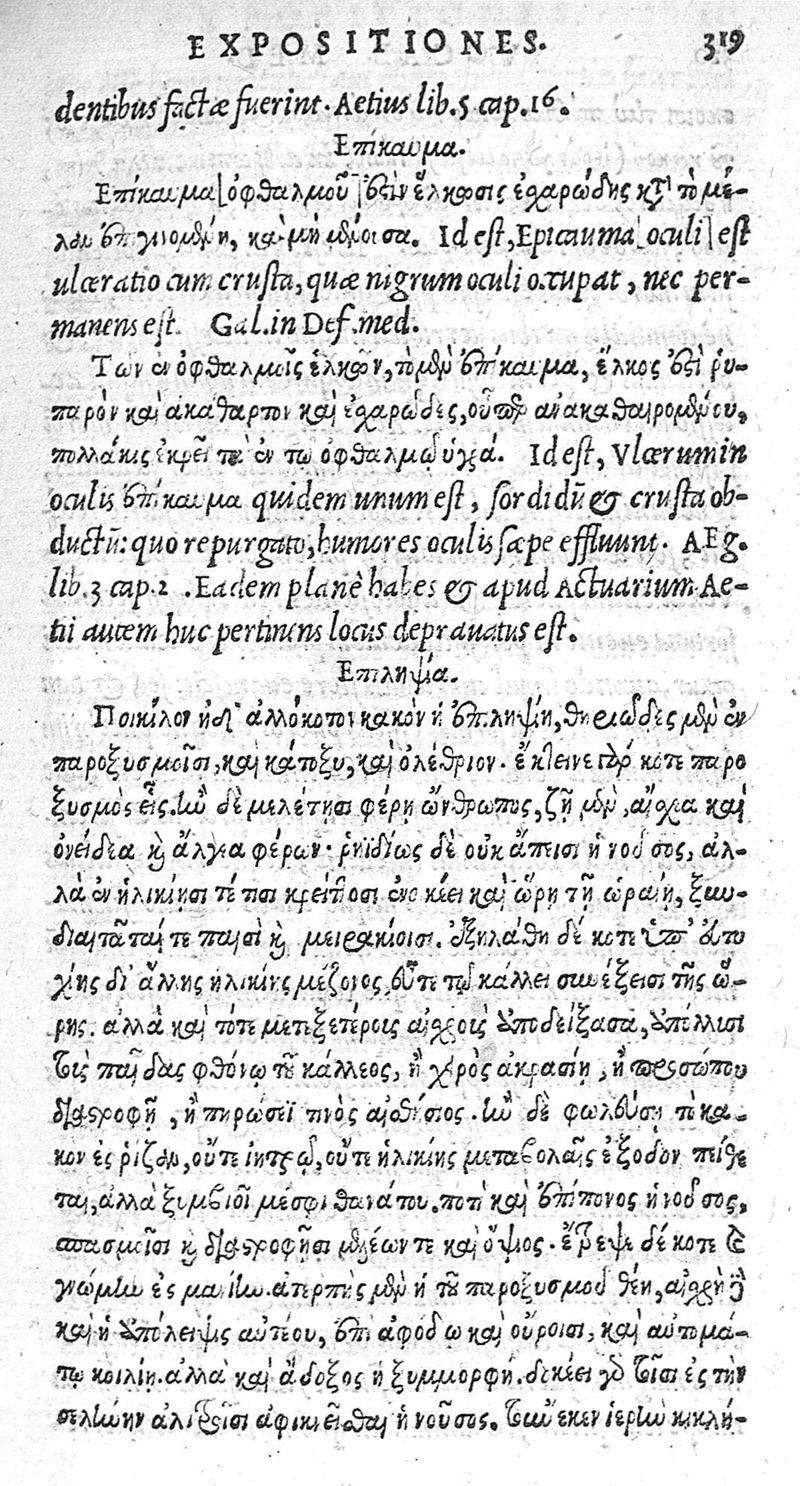 EXPOSITIONES. 319
dentibus factæ fuerint. Aetius lib.5 cap.16.
Επίκαυμα.
Επίκαυμα ὀφθαλμοῦ ἐστὶν ἕλκωσις ἐχαρώδης κατὰ τὸ μέ-
λαν ἐπιγινομένη, καὶ μὴ μένοισα. Id est, Epicauma oculi est
ulceratio cum crusta, quæ nigrum oculi occupat, nec per-
manens est. Gal.in Def.med.
Των ἐν ὀφθαλμοῖς ἑλκῶν, τὸ μὲν ἐπίκαυμα, ἕλκος ἐστὶ ῥυ-
παρὸν καὶ ἀκάθαρτον καὶ ἐχαρῶδες, οὗπερ ἀνακαθαιρομένου,
πολλάκις ἐκρεῖ τὰ ἐν τῳ ὀφθαλμῷ ὑγρά. Id est, Vlcerum in
oculis ἐπίκαυμα quidem unum est, sordidū & crusta ob-
ductū: quo repurgato, humores oculis sæpe effluunt. AEg.
lib.3 cap.2 . Eadem planè habes & apud Actuarium. Ae-
tii autem huc pertinens locus deprauatus est.
Επιληψία.
Ποικίλον ἠδ' ἀλλόκοτον κακὸν ἡ ἐπίληψίη, θηριῶδες μὲν ἐν
παροξυσμοῖσι, καὶ κάτοξυ, καὶ ὀλέθριον. ἔκτεινε γὰρ κοτε παρο
ξυσμὸς εἷς. ἢν δὲ μελέτησι φέρῃ ὥνθρωπος, ζῇ μὲν, αἴσχεα καὶ
ὀνείδεα καὶ ἄλγεα φέρων. ῥηϊδίως δὲ οὐκ ἄπεισι ἡ νοῦσος, ἀλ-
λὰ ἐν ἡλικίῃσι τέ τισι κρείττοσι ἐνοικέει καὶ ὥρῃ τῇ ὡραίῃ, ξυν-
διαιτᾶται τε παισὶ καὶ μειρακίοισι. ἐξηλάθη δέ κοτε ὑπ' εὐτυ
χίης δι' ἄλλης ἡλικίης μέζονος, εὖτε τῷ κάλλει συνέξεισι τῆς ὥ-
ρης. ἀλλὰ καὶ τότε μετεξετέροις αἰσχροὺς ἀποδείξασα, ἀπόλλυσι
τοὺς παῖδας φθόνῳ τοῦ κάλλεος, ἢ χερὸς ἀκρασίῃ, ἢ προσώπου
διαστροφῇ, ἢ πηρώσεϊ τινὸς αἰσθήσιος. ἢν δὲ φωλεύσῃ τὸ κα-
κὸν ἐς ῥίζαν, οὔτε ἰητρῷ, οὔτε ἡλικίης μεταβολαῖς ἐξοδον πείθε
ται, ἀλλὰ ξυμβιοῖ μέσφι θανάτου. ποτὶ καὶ ἐπίπονος ἡ νοῦσος,
σπασμοῖσι καὶ διαστροφῇσι μελέων τε καὶ ὄψιος. ἔτρεψε δέ κοτε τὴν
γνώμην ἐς μανίην. ἀτερπὴς μὲν ἡ τοῦ παροξυσμοῦ θέη, αἰσχρὴ δὲ
καὶ ἡ ἀπόλειψις αὐτέου, ἐπὶ ἀφόδῳ καὶ οὔροισι, καὶ αὐτομά-
τῳ κοιλίῃ. ἀλλὰ καὶ ἄδοξος ἡ ξυμμορφή. δοκέει γὰρ τοῖσι ἐς τὴν
σελήνην ἀλιτροῖσι ἀφικνεῖσθαι ἡ νοῦσος. τοὔνεκεν ἱερὴν κικλή-